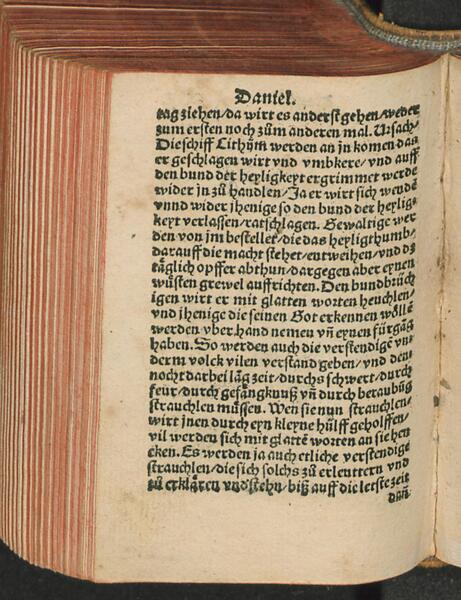 Daniel.
tag ziehen/da wirt es anderst gehen/weder
zum ersten noch zům anderen mal. Ursach/
Die schiff Cithym werden an jn komen das
er geschlagen wirt vnd vmbkere/vnd auff
den bund der heyligkeyt ergrimmet werde
wider jn zů handlen/Ja er wirt sich wendē
vnnd wider jhenige so den bund der heylig⸗
keyt verlassen/ratschlagen. Gewaltige wer
den von jm bestellet/die das heyligthumb/
darauff die macht stehet/entweihen/vnd dz
täglich opffer abthun/dargegen aber eynen
wüsten grewel auffrichten. Den bundbrüch
igen wirt er mit glatten worten heuchlen/
vnd jhenige die seinen Got erkennen wöllē
werden vber hand nemen vñ eynen fürgāg
haben. So werden auch die verstendigē vn⸗
derm volck vilen verstand geben/vnd den⸗
nocht darbei lāg zeit/durchs schwert/durch
feur/durch gefängknuß vñ durch beraubūg
strauchlen müssen. Wen sie nun strauchlen/
wirt jnen durch eyn kleyne hülff geholffen/
vil werden sich mit glattē worten an sie hen
cken. Es werden ja auch etliche verstendige
strauchlen/die sich solchs zů erleuttern vnd
zů erklären vndstehn/biß auff die letste zeit
dañ